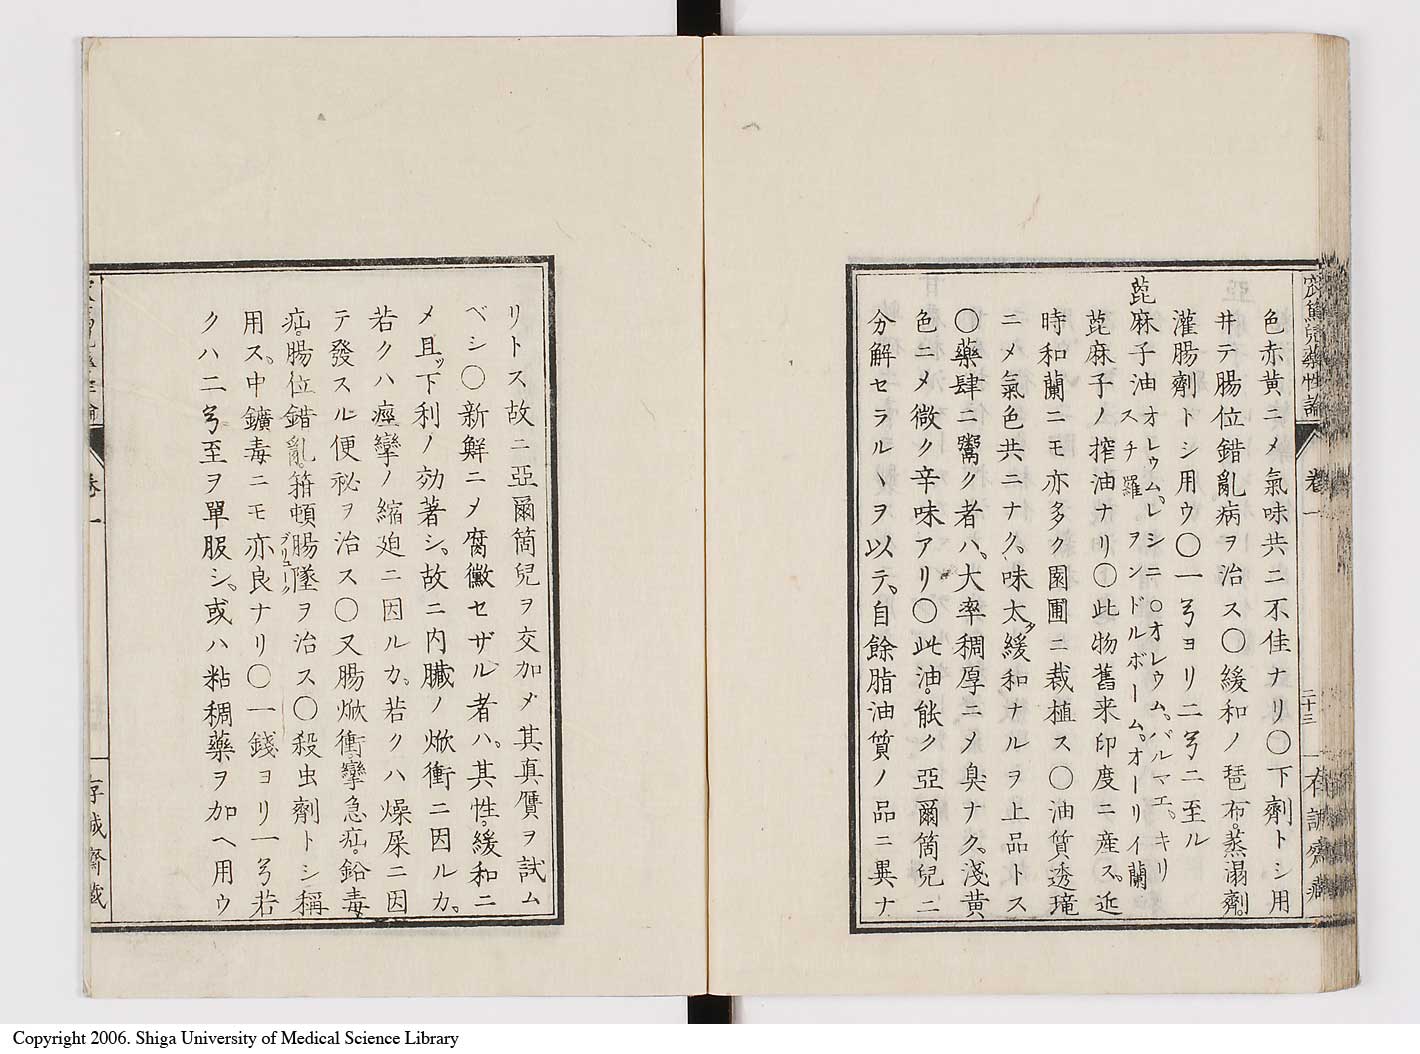 窊篤兒藥性論 卷一 二十三 存誠齋藏
色赤黄ニメ氣味共ニ不佳ナリ〇下劑トシ用
井テ腸位錯亂病ヲ治ス〇緩和ノ琶布。蒸溻劑。
灌腸劑トシ用ウ〇一ヨリ二ニ至ル
蓖麻子油 オレウム、レシニ〇オレウム、バルマエ、キリ
スチ羅 ヲンドルボーム、オーリイ蘭
蓖麻子ノ搾油ナリ〇此物舊来印度ニ産ス。近
時和蘭ニモ亦多ク園圃ニ栽植ス〇油質透瓏
ニメ氣色共ニナク、味太タ緩和ナルヲ上品トス
〇藥肆ニ鬻ク者ハ、大率稠厚ニメ臭ナク、淺黄
色ニメ微ク辛味アリ〇此油。能ク亞爾箇兒ニ
分解セラルヽヲ以テ、自餘脂油質ノ品ニ異ナ
リトス故ニ亞爾箇兒ヲ交加メ其真贋ヲ試ム
ベシ〇新鮮ニメ腐黴セザル者ハ、其性。緩和ニ
メ且ッ下利ノ効著シ、故ニ内臓ノ焮衝ニ因ルカ。
若クハ痙攣ノ縮廹ニ因ルカ。若クハ燥屎ニ因
テ發スル便秘ヲ治ス〇又腸焮衝攣急疝。鉛毒
疝。腸位錯亂。箝頓腸墜ヲ治ス〇殺虫劑トシ稱
ブリューク
用ス。中鑛毒ニモ亦良ナリ〇一錢ヨリ一若
クハ二至ヲ單服シ、或ハ粘稠藥ヲ加ヘ用ウ
卷一
存誠齋藏
Copyright 2006. Shiga University of Medical Science Library